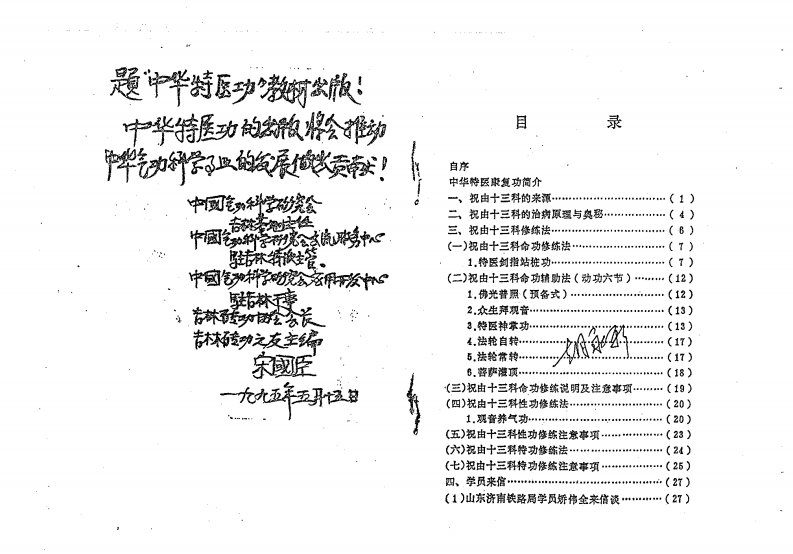 题"中华特医功"教材出版!
中华特医功的出版将会推动
中华气功科学事业的发展做出贡献!
中國气功科学研究会
吉林基地主任
中國气功科学研究会交流服务中心
駐吉林特派主管、
中國气功科学研究会应用开发中心
駐吉林干事
吉林硬功协会会长
吉林硬功之友主编
宋國臣
一九九五年五月十五日
目 录
自序
中华特医康复功简介
一、祝由十三科的来源……………………(1)
二、祝由十三科的治病原理与奥秘………………(4)
三、祝由十三科修练法……………………(6)
(一)祝由十三科命功修练法…………………(7)
1.特医剑指站桩功……………………(7)
(二)祝由十三科命功辅助法(动功六节)………(12)
1.佛光普照(预备式)…………………(12)
2.众生拜观音……………………(13)
3.特医神掌功……………………(13)
4.法轮自转……………………(17)
5.法轮常转……………………(17)
6.菩萨灌顶……………………(18)
(三)祝由十三科命功修练说明及注意事项………(19)
(四)祝由十三科性功修练法…………………(20)
1.观音养气功……………………(20)
(五)祝由十三科性功修练注意事项……………(23)
(六)祝由十三科特功修练法…………………(24)
(七)祝由十三科特功修练注意事项……………(25)
四、学员来信……………………………(27)
(1)山东济南铁路局学员矫伟全来信谈…………(27)